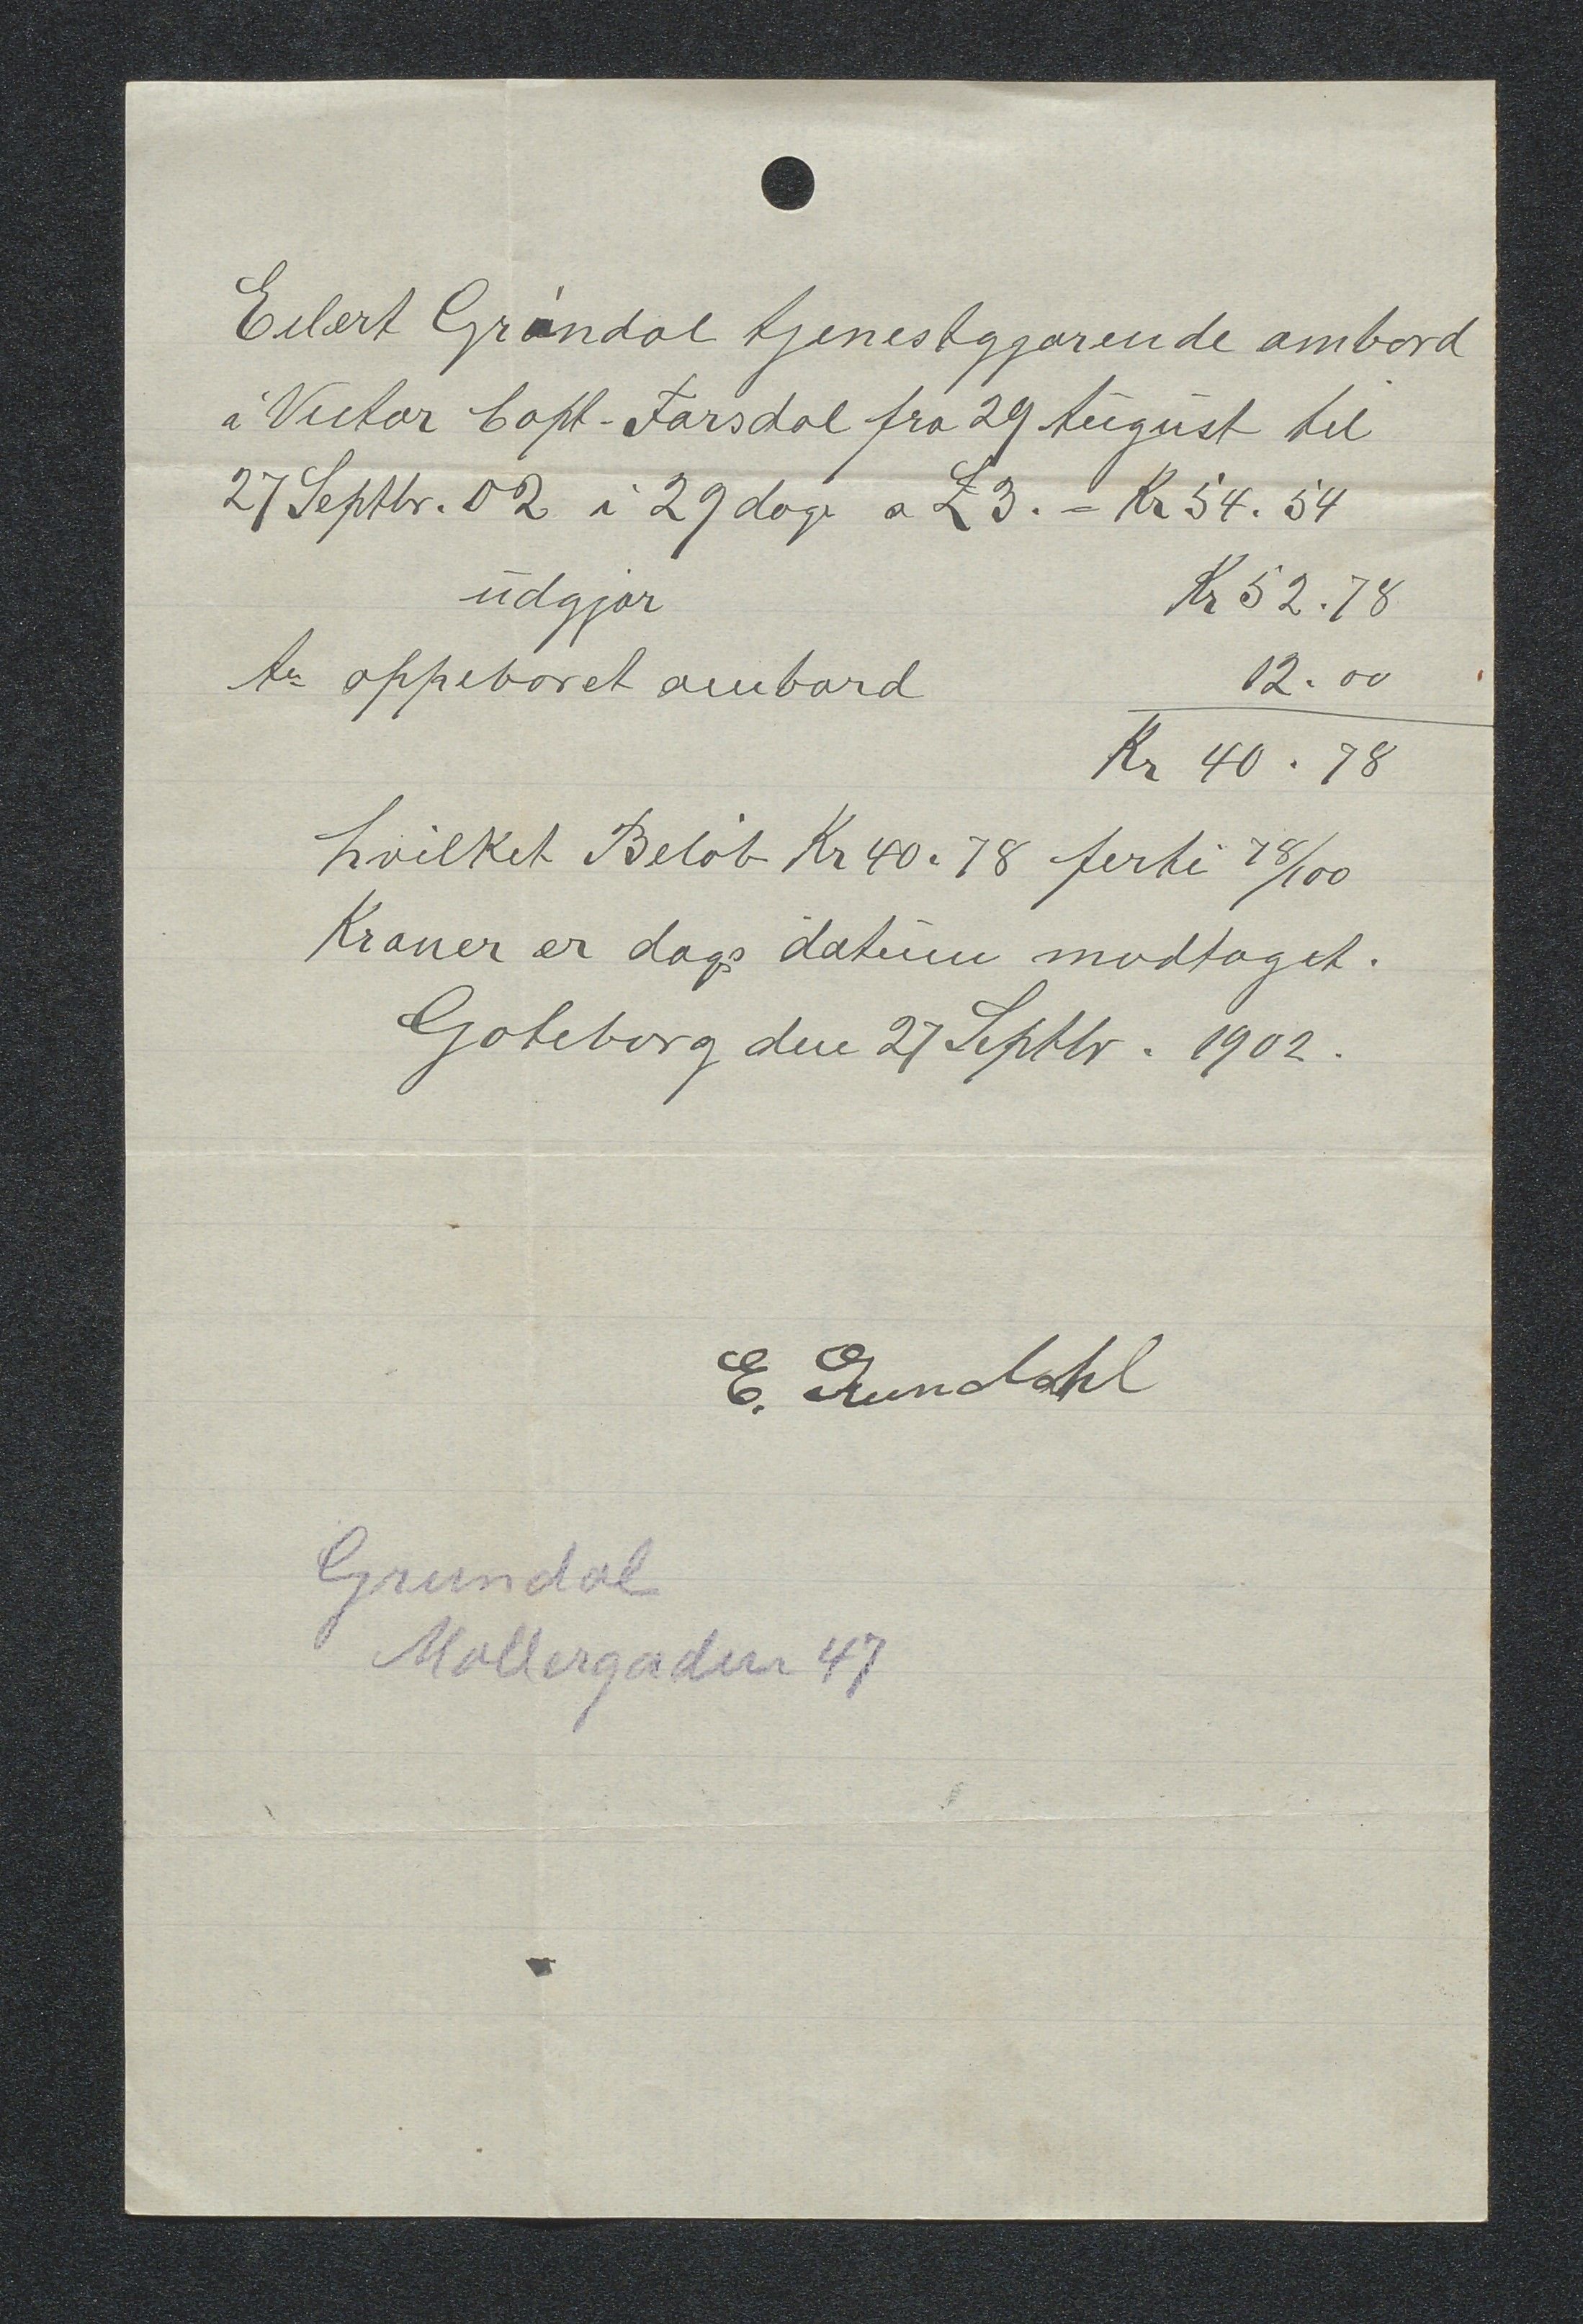 Eilert Gröndal tjenestggørende ombord
i Victor Capt. Farsdal fra 29 August til
27 Septbr. 02 i 29 dage a £3. = Kr 54.54
udgjør Kr 52.78
oppebaret ombord 12.00
Kr 40.78
hvilket Beløb Kr 40.78 førti 78/100
Kroner er dags datum modtaget.
Goteborg den 27 Septbr. 1902.
E. Grundahl
Grundal
Møllergaden 47